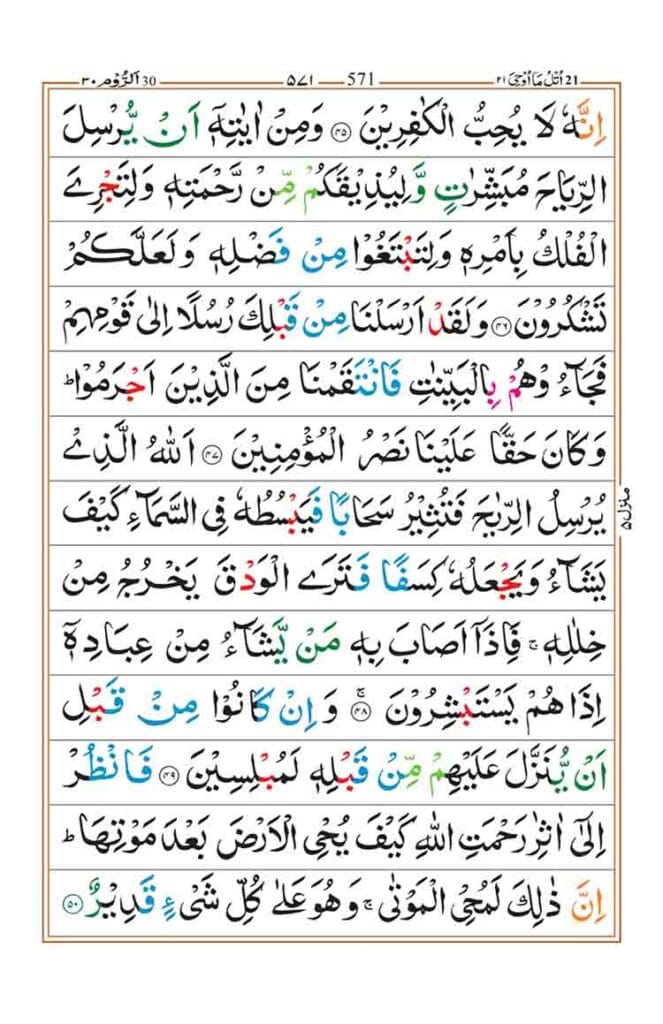 21 اُتْلُ مَاۤ اُوْحِیَ ۲۱ 571 ۵۷۱ 30 اَلرُّوْم ۳۰
اِنَّهٗ لَا یُحِبُّ الْكٰفِرِیْنَ ﴿۴۵﴾ وَمِنْ اٰیٰتِهٖۤ اَنْ یُّرْسِلَ
الرِّیَاحَ مُبَشِّرٰتٍ وَّلِیُذِیْقَكُمْ مِّنْ رَّحْمَتِهٖ وَلِتَجْرِیَ
الْفُلْكُ بِاَمْرِهٖ وَلِتَبْتَغُوْا مِنْ فَضْلِهٖ وَلَعَلَّكُمْ
تَشْكُرُوْنَ ﴿۴۶﴾ وَلَقَدْ اَرْسَلْنَا مِنْ قَبْلِكَ رُسُلًا اِلٰی قَوْمِهِمْ
فَجَآءُوْهُمْ بِالْبَیِّنٰتِ فَانْتَقَمْنَا مِنَ الَّذِیْنَ اَجْرَمُوْا ؕ
وَكَانَ حَقًّا عَلَیْنَا نَصْرُ الْمُؤْمِنِیْنَ ﴿۴۷﴾ اَللّٰهُ الَّذِیْ
یُرْسِلُ الرِّیٰحَ فَتُثِیْرُ سَحَابًا فَیَبْسُطُهٗ فِی السَّمَآءِ كَیْفَ
منزل ۵
یَشَآءُ وَیَجْعَلُهٗ كِسَفًا فَتَرَی الْوَدْقَ یَخْرُجُ مِنْ
خِلٰلِهٖ ۚ فَاِذَاۤ اَصَابَ بِهٖ مَنْ یَّشَآءُ مِنْ عِبَادِهٖۤ
اِذَا هُمْ یَسْتَبْشِرُوْنَ ﴿۴۸﴾ۚ وَاِنْ كَانُوْا مِنْ قَبْلِ
اَنْ یُّنَزَّلَ عَلَیْهِمْ مِّنْ قَبْلِهٖ لَمُبْلِسِیْنَ ﴿۴۹﴾ فَانْظُرْ
اِلٰۤی اٰثٰرِ رَحْمَتِ اللّٰهِ كَیْفَ یُحْیِ الْاَرْضَ بَعْدَ مَوْتِهَا ؕ
اِنَّ ذٰلِكَ لَمُحْیِ الْمَوْتٰی ۚ وَهُوَ عَلٰی كُلِّ شَیْءٍ قَدِیْرٌ ﴿۵۰﴾